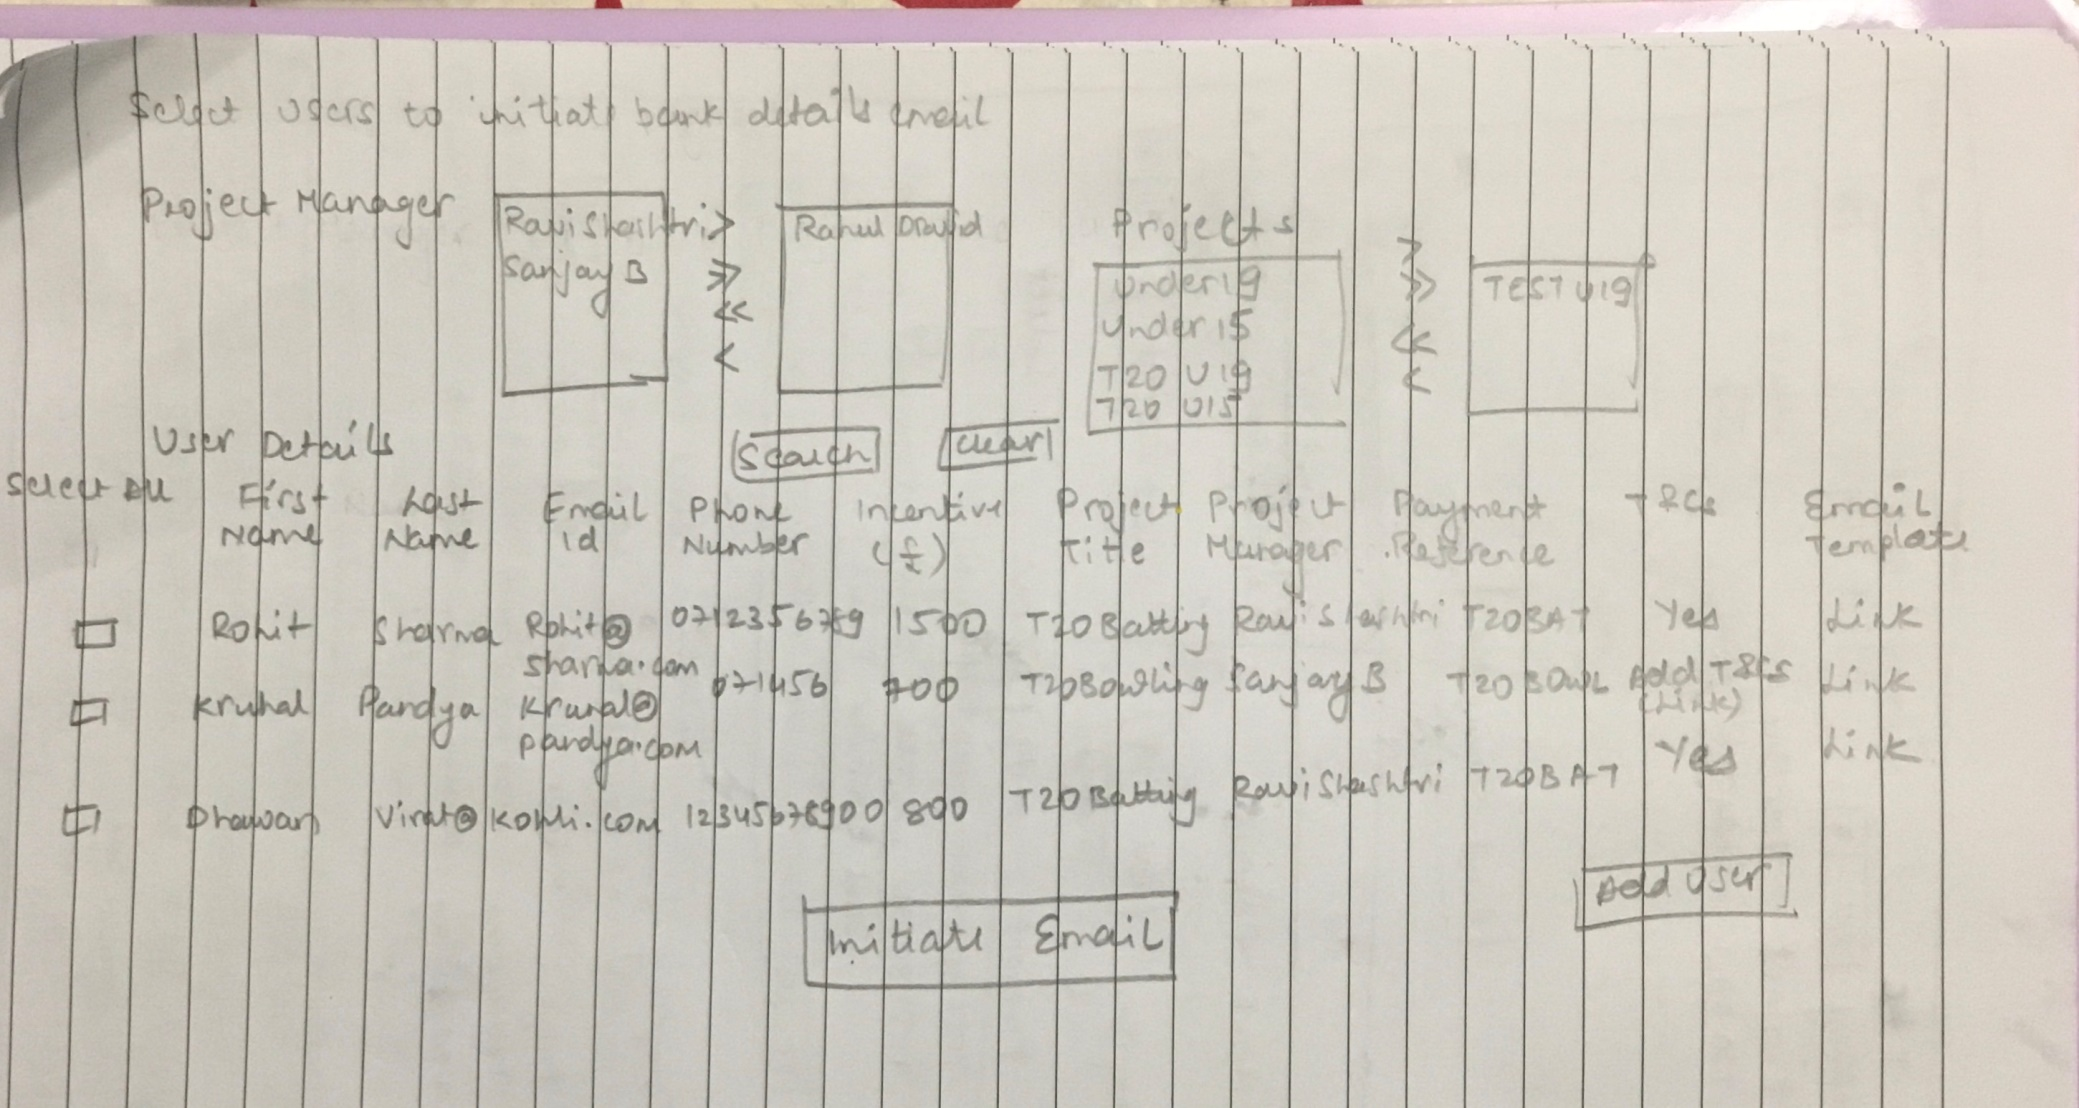 Select users to initiate bank details email
Project Manager
Ravi Shashtri
Sanjay B
>
>>
<<
<
Rahul Dravid
Projects
Under 19
Under 15
T20 U19
T20 U15
>
>>
<<
<
TEST U19
Search
Clear
User Details
Select All First Name Last Name Email Id Phone Number Incentive (£) Project Title Project Manager Payment Reference T&Cs Email Template
Rohit Sharma Rohit@sharma.com 0712356789 1500 T20 Batting Ravi Shashtri T20BAT Yes Link
Krunal Pandya Krunal@pandya.com 071456 700 T20 Bowling Sanjay B T20BOWL Add T&Cs (Link) Link
Dhawan Virat@Kohli.com 12345678900 800 T20 Batting Ravi Shashtri T20BAT Yes Link
Add User
Initiate Email